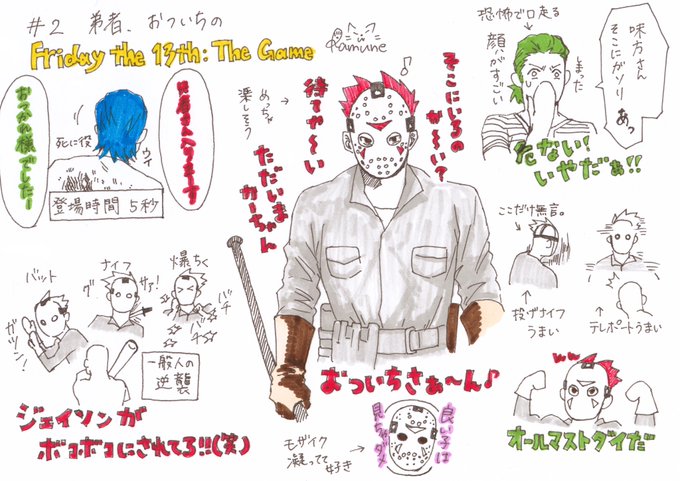 #2 弟者、おついちの
Friday the 13th: The Game
Ramune
兄者さん入りまーす
おつかれ様でしたー
死に役
ウイ
登場時間 5秒
♪
そこにいるの
が～い？
待てや～い
ただいま
かーちゃん
めっちゃ
楽しそう
恐怖で口走る
顔がすごい
しまった
味方さん
そこにガソリ
あっ
危ない！
いやだぁ!!
ここだけ無言。
投げナイフ
うまい
テレポートうまい
バット
ガッツン！
ナイフ
グ
サァ！
爆ちく
バチ
バチ
一般人の
逆襲
ジェイソンが
ボコボコにされてる!!(笑)
おついちさぁ～ん♪
モザイク
凝ってて
好き
良い子は
見ちゃダメ
ww
オールマストダイだ